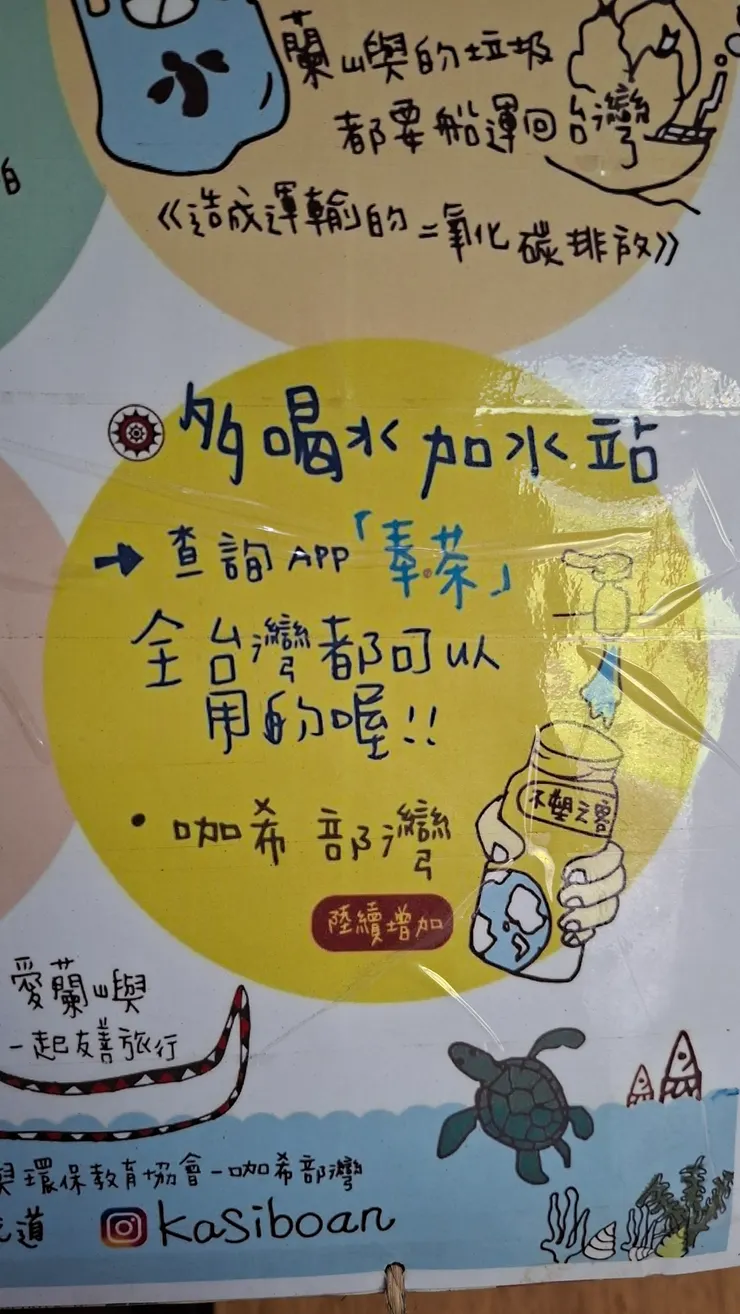 蘭屿嶼的垃圾
都要船運回台灣
《造成運輸的二氧化碳排放》
多喝水加水站
→查詢APP「奉茶」
全台灣都可以
用的喔!!
不塑之客
•咖希部灣
陸續增加
愛蘭嶼
一起友善旅行
環保教育協會-咖希部灣
道
kasiboan